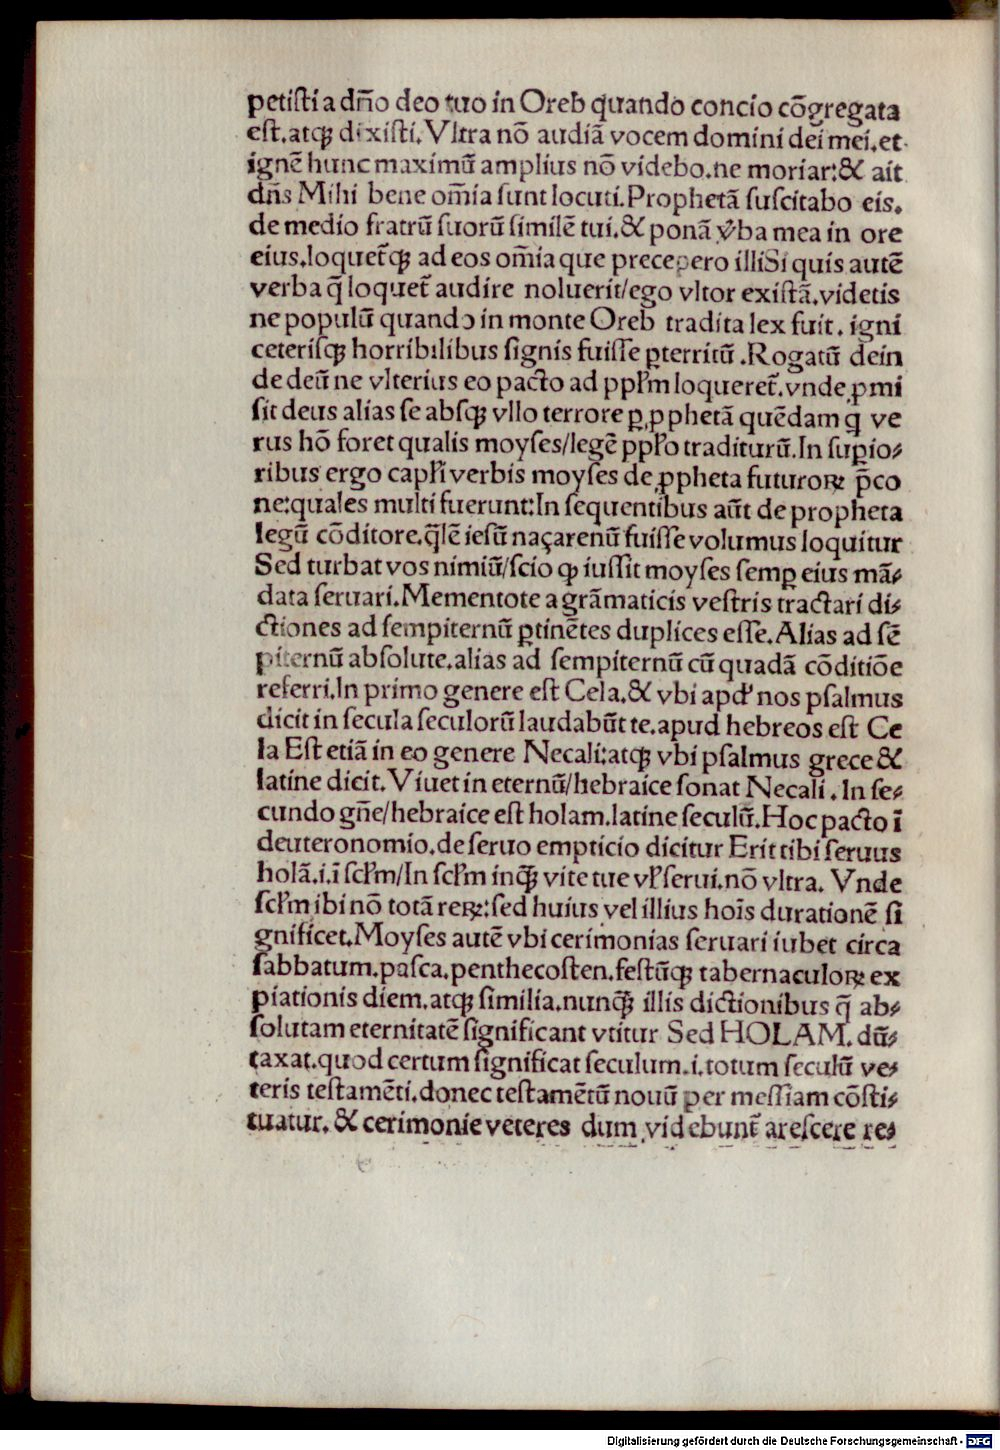 petisti a dn̄o deo tuo in Oreb quando concio cōgregata
est.atqꝫ dixisti.Vltra nō audiā vocem domini dei mei.et
ignē hunc maximū amplius nō videbo.ne moriar:& ait
dn̄s Mihi bene om̄ia sunt locuti.Prophetā suscitabo eis.
de medio fratrū suorū similē tui.& ponā v̄ba mea in ore
eius.loquet̄qꝫ ad eos om̄ia que precepero illi Si quis autē
verba q̄ loquet̄ audire noluerit/ego vltor existā.videtis
ne populū quando in monte Oreb tradita lex fuit. igni
ceterisqꝫ horribilibus signis fuisse ꝑterritū .Rogatū dein
de deū ne vlterius eo pacto ad pplm̄ loqueret̄.vnde ꝓmi
sit deus alias se absqꝫ vllo terrore ꝑ ꝓphetā quēdam q̄ ve
rus hō foret qualis moyses/legē pplō traditurū.In supio⸗
ribus ergo capl̄i verbis moyses de ꝓpheta futuroꝝ p̄co
ne:quales multi fuerunt:In sequentibus aūt de propheta
legū cōditore.q̄lē iesū naçarenū fuisse volumus loquitur
Sed turbat vos nimiū/scio ꝙ iussit moyses semꝑ eius mā⸗
data seruari.Mementote a grāmaticis vestris tractari di⸗
ctiones ad sempiternū ꝑtinētes duplices esse.Alias ad sē
piternū absolute.alias ad sempiternū cū quadā cōditiōe
referri.In primo genere est Cela.& vbi apd' nos psalmus
dicit in secula seculorū laudabūt te.apud hebreos est Ce
la Est etiā in eo genere Necali:atqꝫ vbi psalmus grece &
latine dicit.Viuet in eternū/hebraice sonat Necali .In se⸗
cundo gn̄e/hebraice est holam.latine seculū.Hoc pacto ī
deuteronomio.de seruo empticio dicitur Erit tibi seruus
holā.i.ī scl̄m/In scl̄m inqꝫ̄ vite tue vl̄ serui.nō vltra. Vnde
scl̄m ibi nō totā reꝝ:sed huius vel illius hoīs durationē si
gnificet.Moyses autē vbi cerimonias seruari iubet circa
sabbatum.pasca.penthecosten.festūqꝫ tabernaculoꝝ ex
piationis diem.atqꝫ similia.nunqꝫ̄ illis dictionibus q̄ ab⸗
solutam eternitatē significant vtitur Sed HOLAM. dū⸗
taxat.quod certum significat seculum.i.totum seculū ve⸗
teris testamēti.donec testamētū nouū per messiam cōsti⸗
tuatur. & cerimonie veteres dum videbunt̄ arescere re⸗
Digitalisierung gefördert durch die Deutsche Forschungsgemeinschaft - DFG